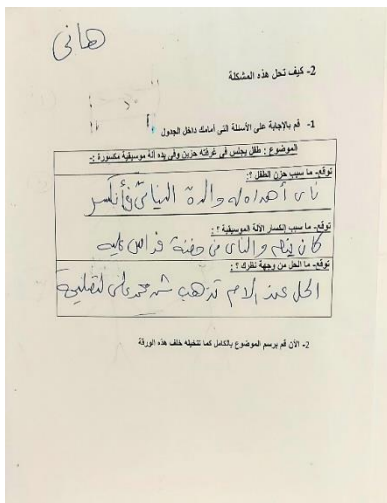 هانى
2- كيف تحل هذه المشكلة
1- قم بالإجابة على الأسئلة التى أمامك داخل الجدول
الموضوع : طفل يجلس فى غرفته حزين وفى يده آلة موسيقية مكسورة :-
توقع- ما سبب حزن الطفل ؟:
ناى أهداه له والدة فأنكسر
توقع- ما سبب إنكسار الآلة الموسيقية ؟ :
كان ينام والناى فى حضنة فداس عليه
توقع- ما الحل من وجهة نظرك ؟ :
الحل عند الام تذهب محمد على لتصليحة
2- الأن قم برسم الموضوع بالكامل كما تتخيله خلف هذه الورقة